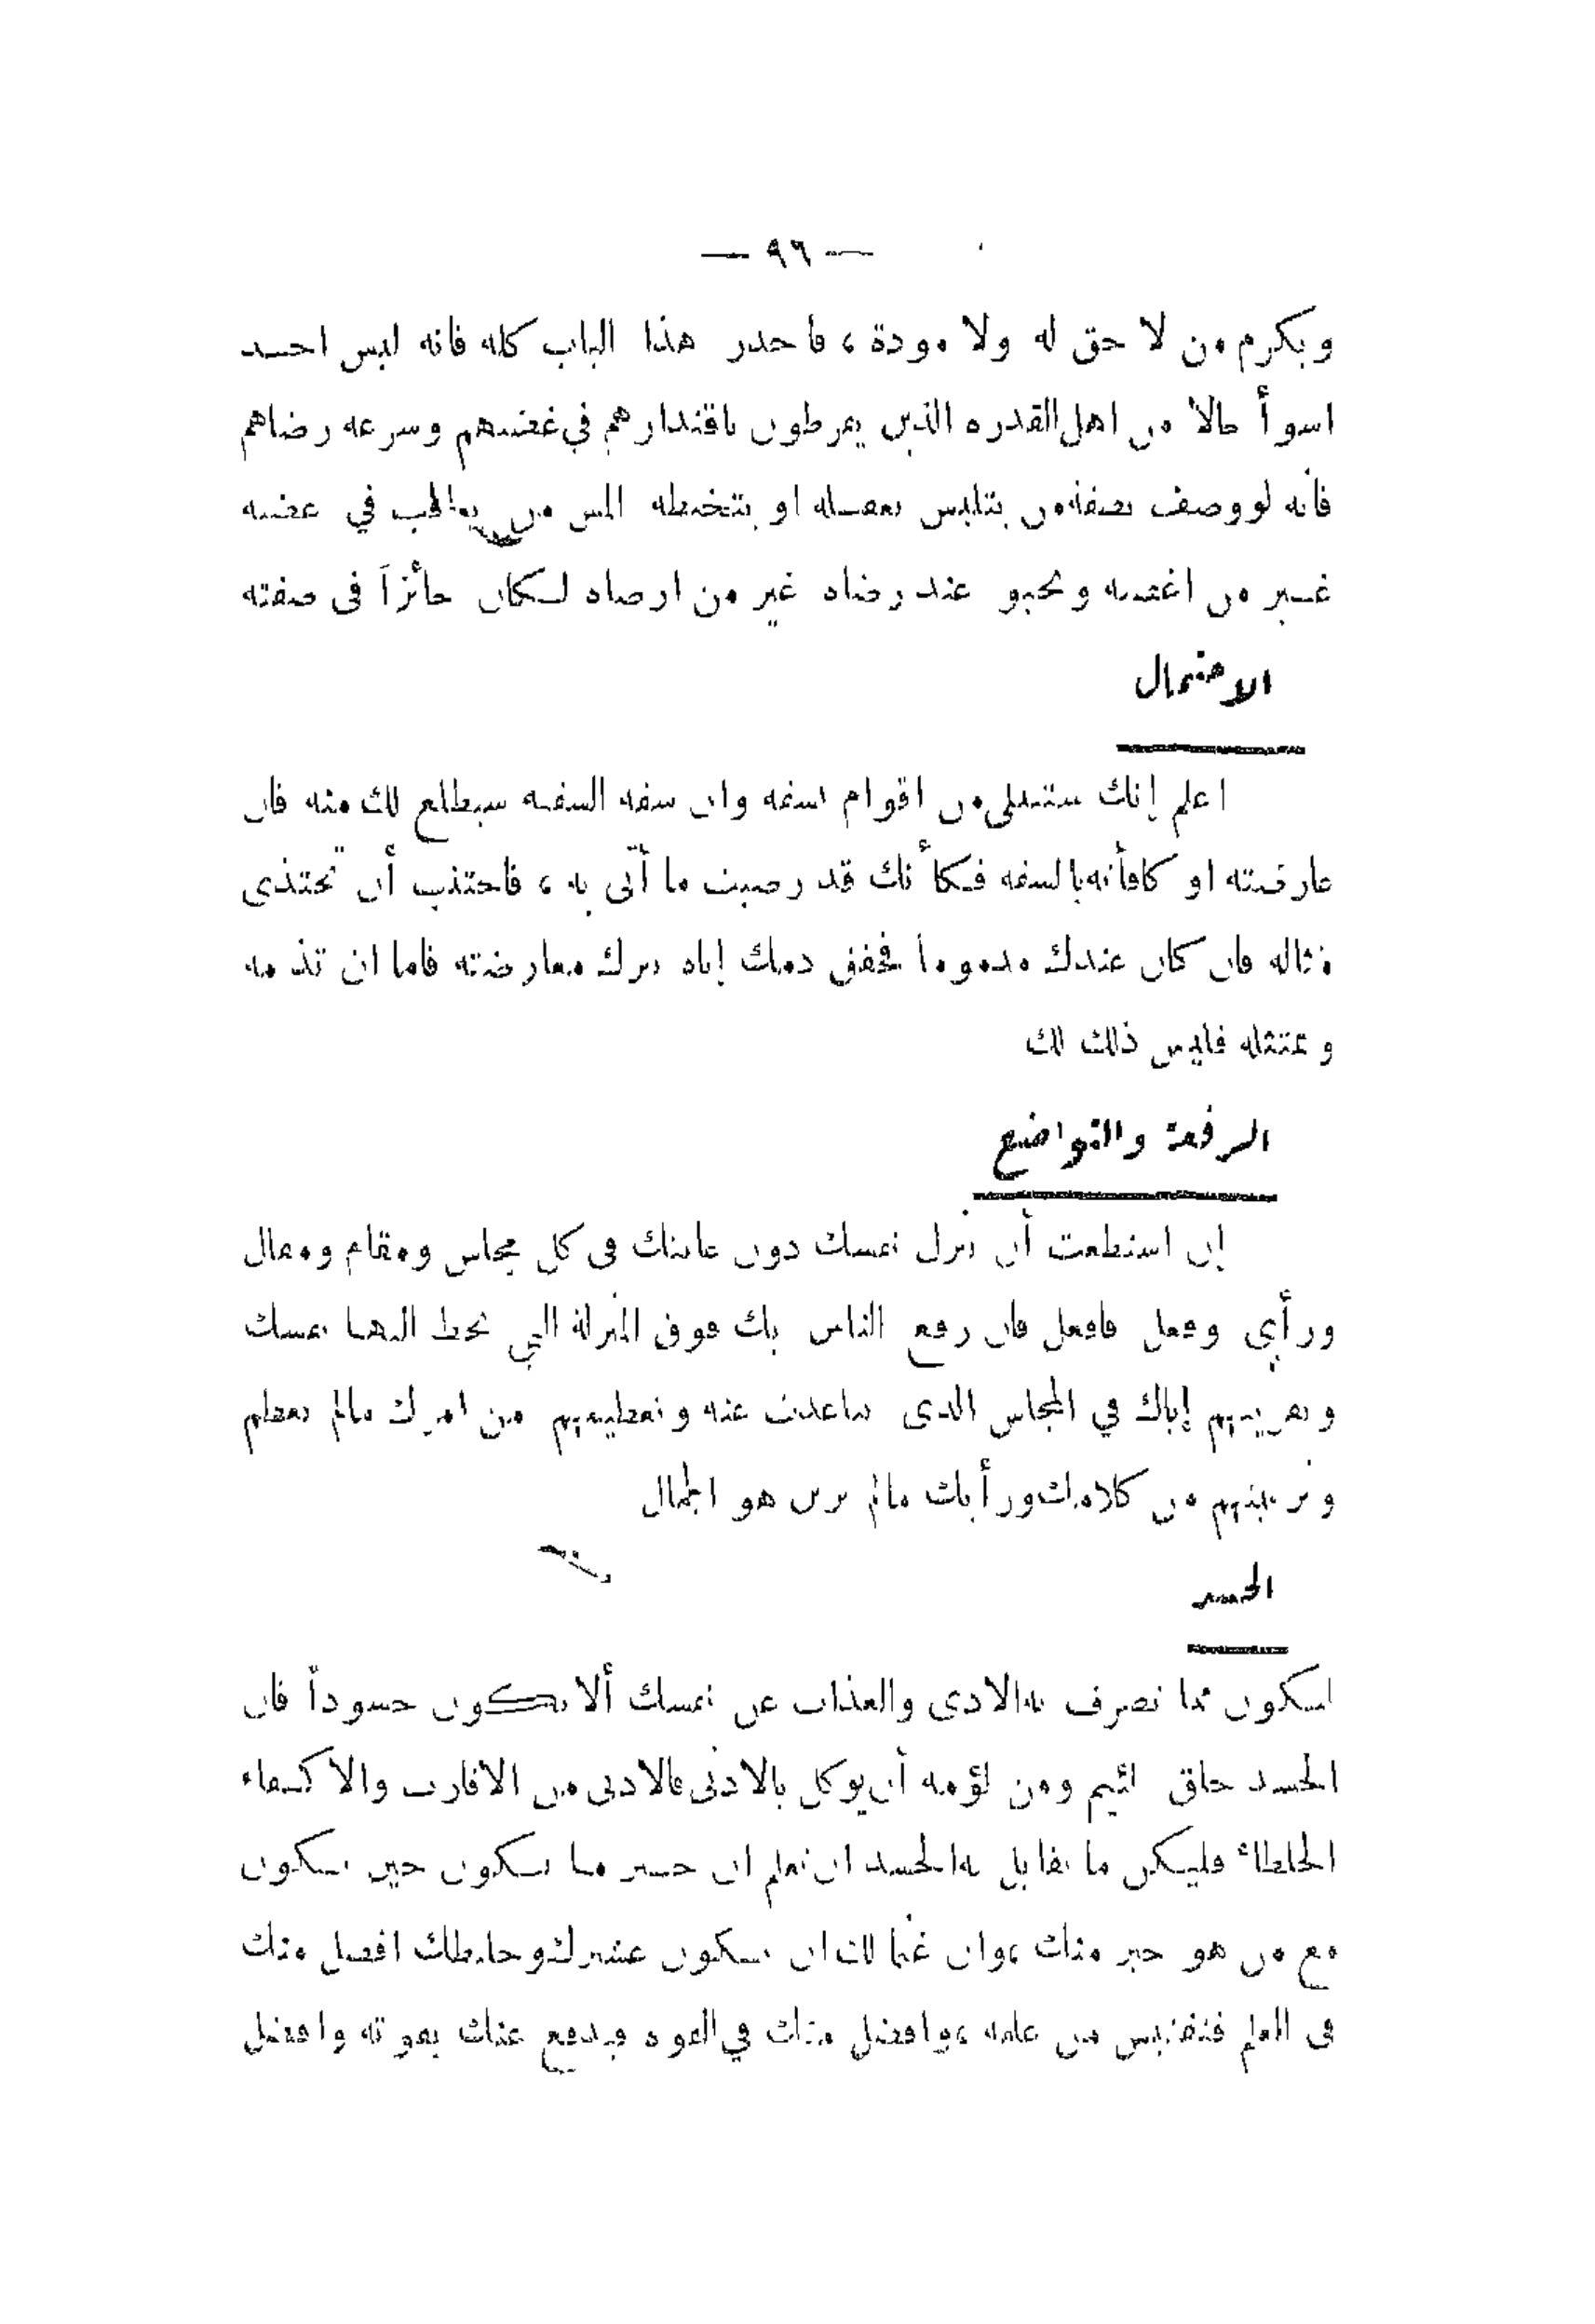 — ٩٦ —
ويكرم من لا حق له ولا مودة ، فاحذر هذا الباب كله فانه ليس احد
اسوأ حالاً من اهل القدره الذين يفرطون باقتدارهم في غضبهم وسرعه رضاهم
فانه لو وصف بصفة من يتلبس بعقله او يتخبطه المس من يعاقب في غضبه
غير من اغضبه ويحبو عند رضاه غير من ارضاه لكان جائزاً في صفته
الاحتمال
اعلم إنك ستبتلى من اقوام بسفه وان سفه السفيه سيطلع لك منه فان
عارضته او كافأته بالسفه فكأنك قد رضيت ما أتى به ، فاجتنب أن تحتذي
مثاله فان كان عندك مذموماً فحقق ذمك إياه بترك معارضته فاما ان تذمه
وتمتثله فليس ذلك لك
الرفعة والتواضع
إن استطعت أن تنزل نفسك دون غايتك في كل مجلس ومقام ومقال
ورأي وفعل فافعل فان رفع الناس بك فوق المنزلة التي تحط اليها نفسك
وتقريبهم إياك في المجلس الذي تباعدت عنه وتعظيمهم من امرك مالم تعظم
وتزيينهم من كلامك ورأيك مالم تزين هو الجمال
الحسد
ليكون مما تصرف به الاذى والعذاب عن نفسك ألا تكون حسوداً فان
الحسد خلق لئيم ومن لؤمه أن يوكل بالادنى فالادنى من الاقارب والاكفاء
الخلطاء فليكن ما تقابل به الحسد ان تعلم ان خير ما تكون حين تكون
مع من هو خير منك ، وان غنما لك ان يكون عشيرك وخليطك افضل منك
في العلم فتقتبس من علمه ، وافضل منك في القوه فيدفع عنك بقوته وافضل